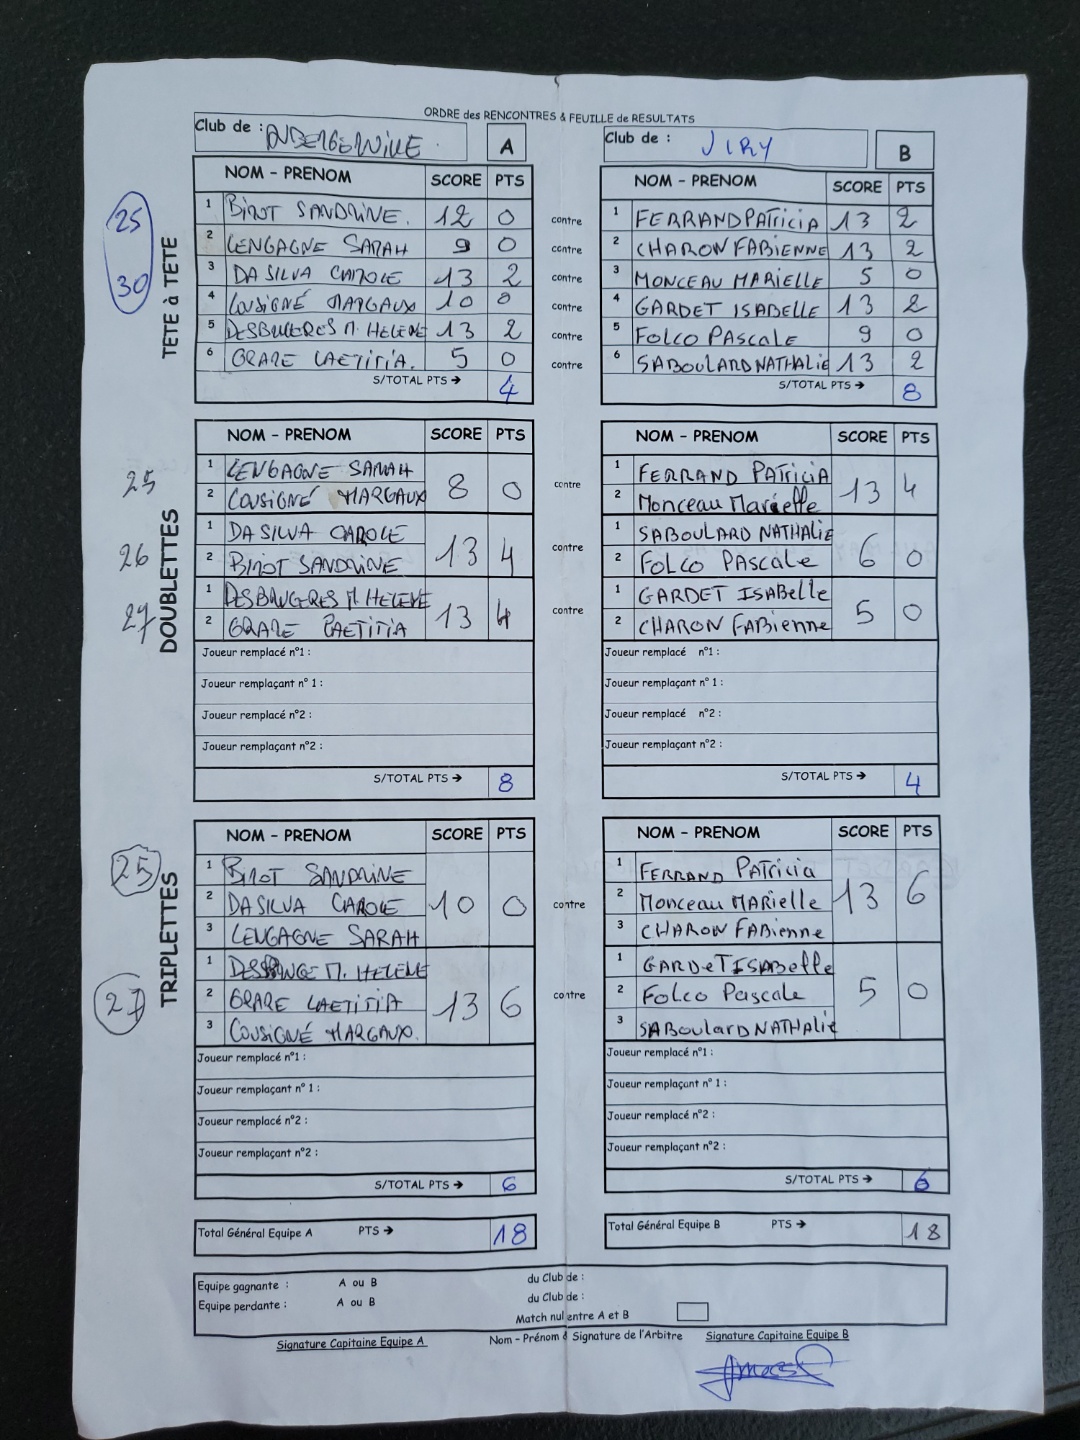 ORDRE des RENCONTRES & FEUILLE de RESULTATS
Club de : A
Club de : VIRY B
NOM - PRENOM SCORE PTS
NOM - PRENOM SCORE PTS
25
30
TETE à TETE
1 BIZOT SANDRINE. 12 0 contre 1 FERRAND PATRICIA 13 2
2 LENGAGNE SARAH 9 0 contre 2 CHARON FABIENNE 13 2
3 DA SILVA CAROLE 13 2 contre 3 MONCEAU MARIELLE 5 0
4 COUSIGNÉ MARGAUX 10 0 contre 4 GARDET ISABELLE 13 2
5 DESBUGERES M. HELENE 13 2 contre 5 FOLCO PASCALE 9 0
6 GRARE LAETITIA. 5 0 contre 6 SABOULARD NATHALIE 13 2
S/TOTAL PTS → 4
S/TOTAL PTS → 8
DOUBLETTES
NOM - PRENOM SCORE PTS
NOM - PRENOM SCORE PTS
25
1 LENGAGNE SARAH
2 COUSIGNÉ MARGAUX 8 0 contre
1 FERRAND PATRICIA
2 Monceau Marielle 13 4
26
1 DA SILVA CAROLE
2 BIZOT SANDRINE 13 4 contre
1 SABOULARD NATHALIE
2 FOLCO PASCALE 6 0
27
1 M. HELENE
2 GRARE LAETITIA 13 4 contre
1 GARDET ISABelle
2 CHARON FABienne 5 0
Joueur remplacé n°1 :
Joueur remplaçant n° 1 :
Joueur remplacé n°2 :
Joueur remplaçant n°2 :
S/TOTAL PTS → 8
Joueur remplacé n°1 :
Joueur remplaçant n° 1 :
Joueur remplacé n°2 :
Joueur remplaçant n°2 :
S/TOTAL PTS → 4
TRIPLETTES
NOM - PRENOM SCORE PTS
NOM - PRENOM SCORE PTS
25
1 BIZOT SANDRINE
2 DA SILVA CAROLE 10 0 contre
3 LENGAGNE SARAH
1 FERRAND PATRICIA
2 Monceau MARielle 13 6
3 CHARON FABienne
27
1 M. HELENE
2 GRARE LAETITIA 13 6 contre
3 COUSIGNÉ MARGAUX.
1 GARDeT ISABelle
2 FOLCO Pascale 5 0
3 SABoulard NATHALIE
Joueur remplacé n°1 :
Joueur remplaçant n° 1 :
Joueur remplacé n°2 :
Joueur remplaçant n°2 :
S/TOTAL PTS → 6
Joueur remplacé n°1 :
Joueur remplaçant n° 1 :
Joueur remplacé n°2 :
Joueur remplaçant n°2 :
S/TOTAL PTS → 6
Total Général Equipe A PTS → 18
Total Général Equipe B PTS → 18
Equipe gagnante : A ou B du Club de :
Equipe perdante : A ou B du Club de :
Match nul entre A et B
Signature Capitaine Equipe A Nom - Prénom & Signature de l'Arbitre Signature Capitaine Equipe B